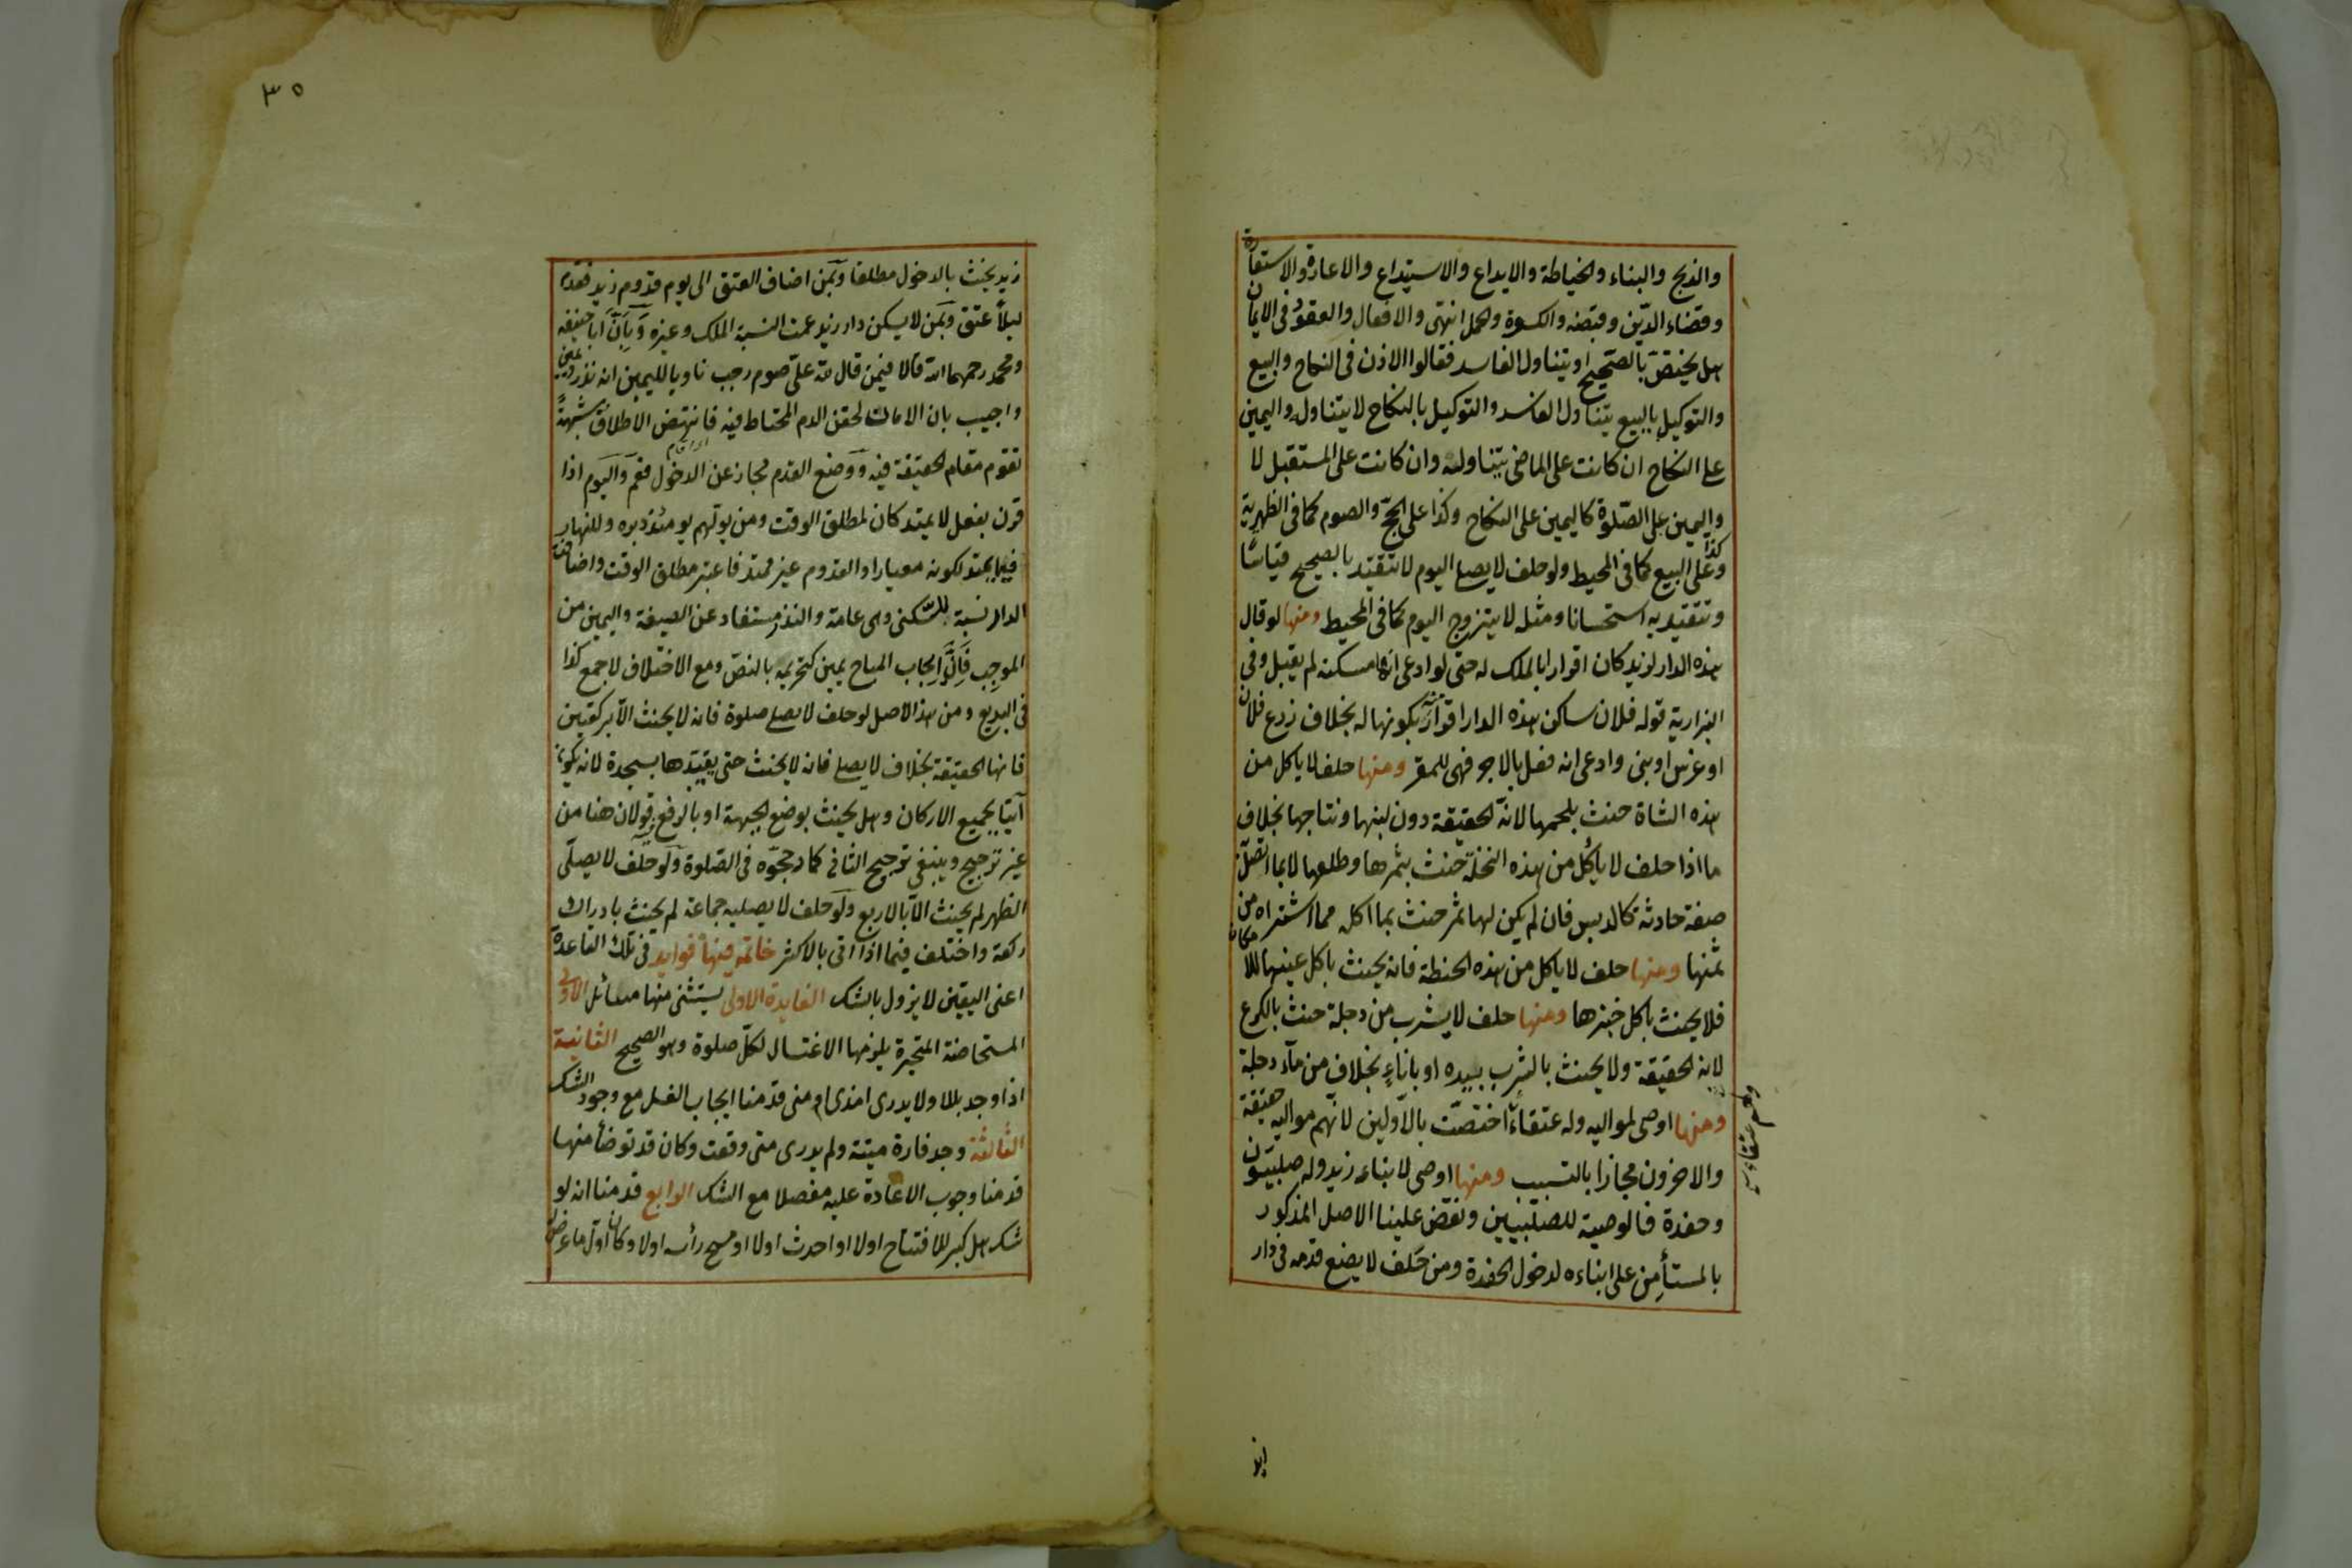 والذبح والبناء والخياطة والايداع والاستيداع والاعارة والاستعارة
وقضاء الدّين وقبضه والكسوة والحمل انتهى والافعال والعقود في الايمان
هل يختصّ بالصّحيح او يتناول الفاسد فقالوا الاذن في النكاح والبيع
والتوكيل بالبيع يتناول الفاسد والتوكيل بالنكاح لا يتناوله واليمين
على النكاح ان كانت على الماضي يتناوله وان كانت على المستقبل لا
واليمين على الصّلوة كاليمين على النكاح وكذا على الحجّ والصوم كما في الظهيرية
وكذا على البيع كما في المحيط ولو حلف لا يصلى اليوم لا تتقيّد بالصحيح قياسًا
وتتقيد به استحسانا ومثله لا يتزوج اليوم كما في المحيط ومنها لو قال
هذه الدار لزيد كان اقرارا بالملك له حتى لو ادعى انها مسكنه لم يقبل وفي
البزازية قوله فلان ساكن هذه الدار اقرار منه بكونها له بخلاف زرع فلان
او غرس او بنى وادعى انه فعل بالاجر فهى للمقر ومنها حلف لا ياكل من
هذه الشاة حنث بلحمها لانّه الحقيقة دون لبنها ونتاجها بخلاف
ما اذا حلف لا يأكل من هذه النخلة حنث بثمرها وطلعها لا بما اتّصل
صفة حادثة كالدبس فان لم يكن لها ثمر حنث بما اكل مما اشتراه من
ثمنها ومنها حلف لا ياكل من هذه الحنطة فانه يحنث باكل عينها للامكان
فلا يحنث باكل خبزها ومنها حلف لا يشرب من دجلة حنث بالكرع
لانه الحقيقة ولا يحنث بالشرب بيده او باناءٍ بخلاف من ماء دجلة
ومنها اوصى لمواليه وله عتقاء اختصّت بالاولين لانّهم مواليه حقيقة
ولهم عتقاء
والاخرون مجازا بالتسبيب ومنها اوصى لابناء زيد وله صلبيّون
وحفدة فالوصية للصلبيين ونقض علينا الاصل المذكور
بالمستأمِن على ابناءه لدخول الحفدة ومن حَلف لا يضع قدمه في دار
٣٥
زيد يحنث بالدخول مطلقا وبمن اضاف العتق الى يوم قدوم زيد فقدم
ليلاً عتق وبمن لا يسكن دار زيد عمت النسبة الملك وغيره وبأنّ ابا حنيفة
ومحمد رحمهما الله قالا فيمن قال لله علىّ صوم رجب ناويا لليمين انه نذر ويمين
واجيب بان الامان لحقن الدم المحتاط فيه فانتهض الاطلاق شبهةً
تقوم مقام الحقيقة فيه ووضع القدم مجاز عن الدخول فعمّ واليوم اذا
قرن بفعل لا يمتد كان لمطلق الوقت ومن يولّهم يومئذ دبره وللنهار
فيما يمتد لكونه معيارا والقدوم غير ممتد فاعتبر مطلق الوقت واضافة
الدار نسبة للسّكنى وهى عامة والنذر مستفاد عن الصيغة واليمين من
الموجِب فانّ ايجاب المباح يمين كتحريمه بالنصّ ومع الاختلاف لا جمع كذا
في البديع ومن هذا الاصل لو حلف لا يصلى صلوة فانه لا يحنث الّا بركعتين
فانها الحقيقة بخلاف لا يصلى فانه لا يحنث حتى يقيّدها بسجدة لانه يكون
آتيًا بجميع الاركان وهل يحنث بوضع الجبهة او بالرفع قولان هنا من
غير ترجيح وينبغي ترجيح الثاني كما رجحّوه في الصّلوة ولو حلف لا يصلّى
الظهر لم يحنث الّا بالاربع ولو حلف لا يصليه جماعة لم يحنث بادراك
ركعة واختلف فيما اذا اتى بالاكثر خاتمه فيها فوايد في تلك القاعدة
اعنى اليقين لا يزول بالشك الفايدة الاولى يستثنى منها مسائل الاولى
المستحاضة المتحيرة يلزمها الاغتسال لكلّ صلوة وهو الصحيح الثانية
اذا وجد بللا ولا يدرى امذى ام منى قدمنا ايجاب الغسل مع وجود الشك
الثالثة وجد فارة ميتة ولم يدرى متى وقعت وكان قد توضأ منها
قدمنا وجوب الاعادة عليه مفصلا مع الشك الرابع قدمنا انه لو
شك هل كبر للافتتاح اولا او احدث اولا او مسح رأسه اولا وكان اوّل ما عرض